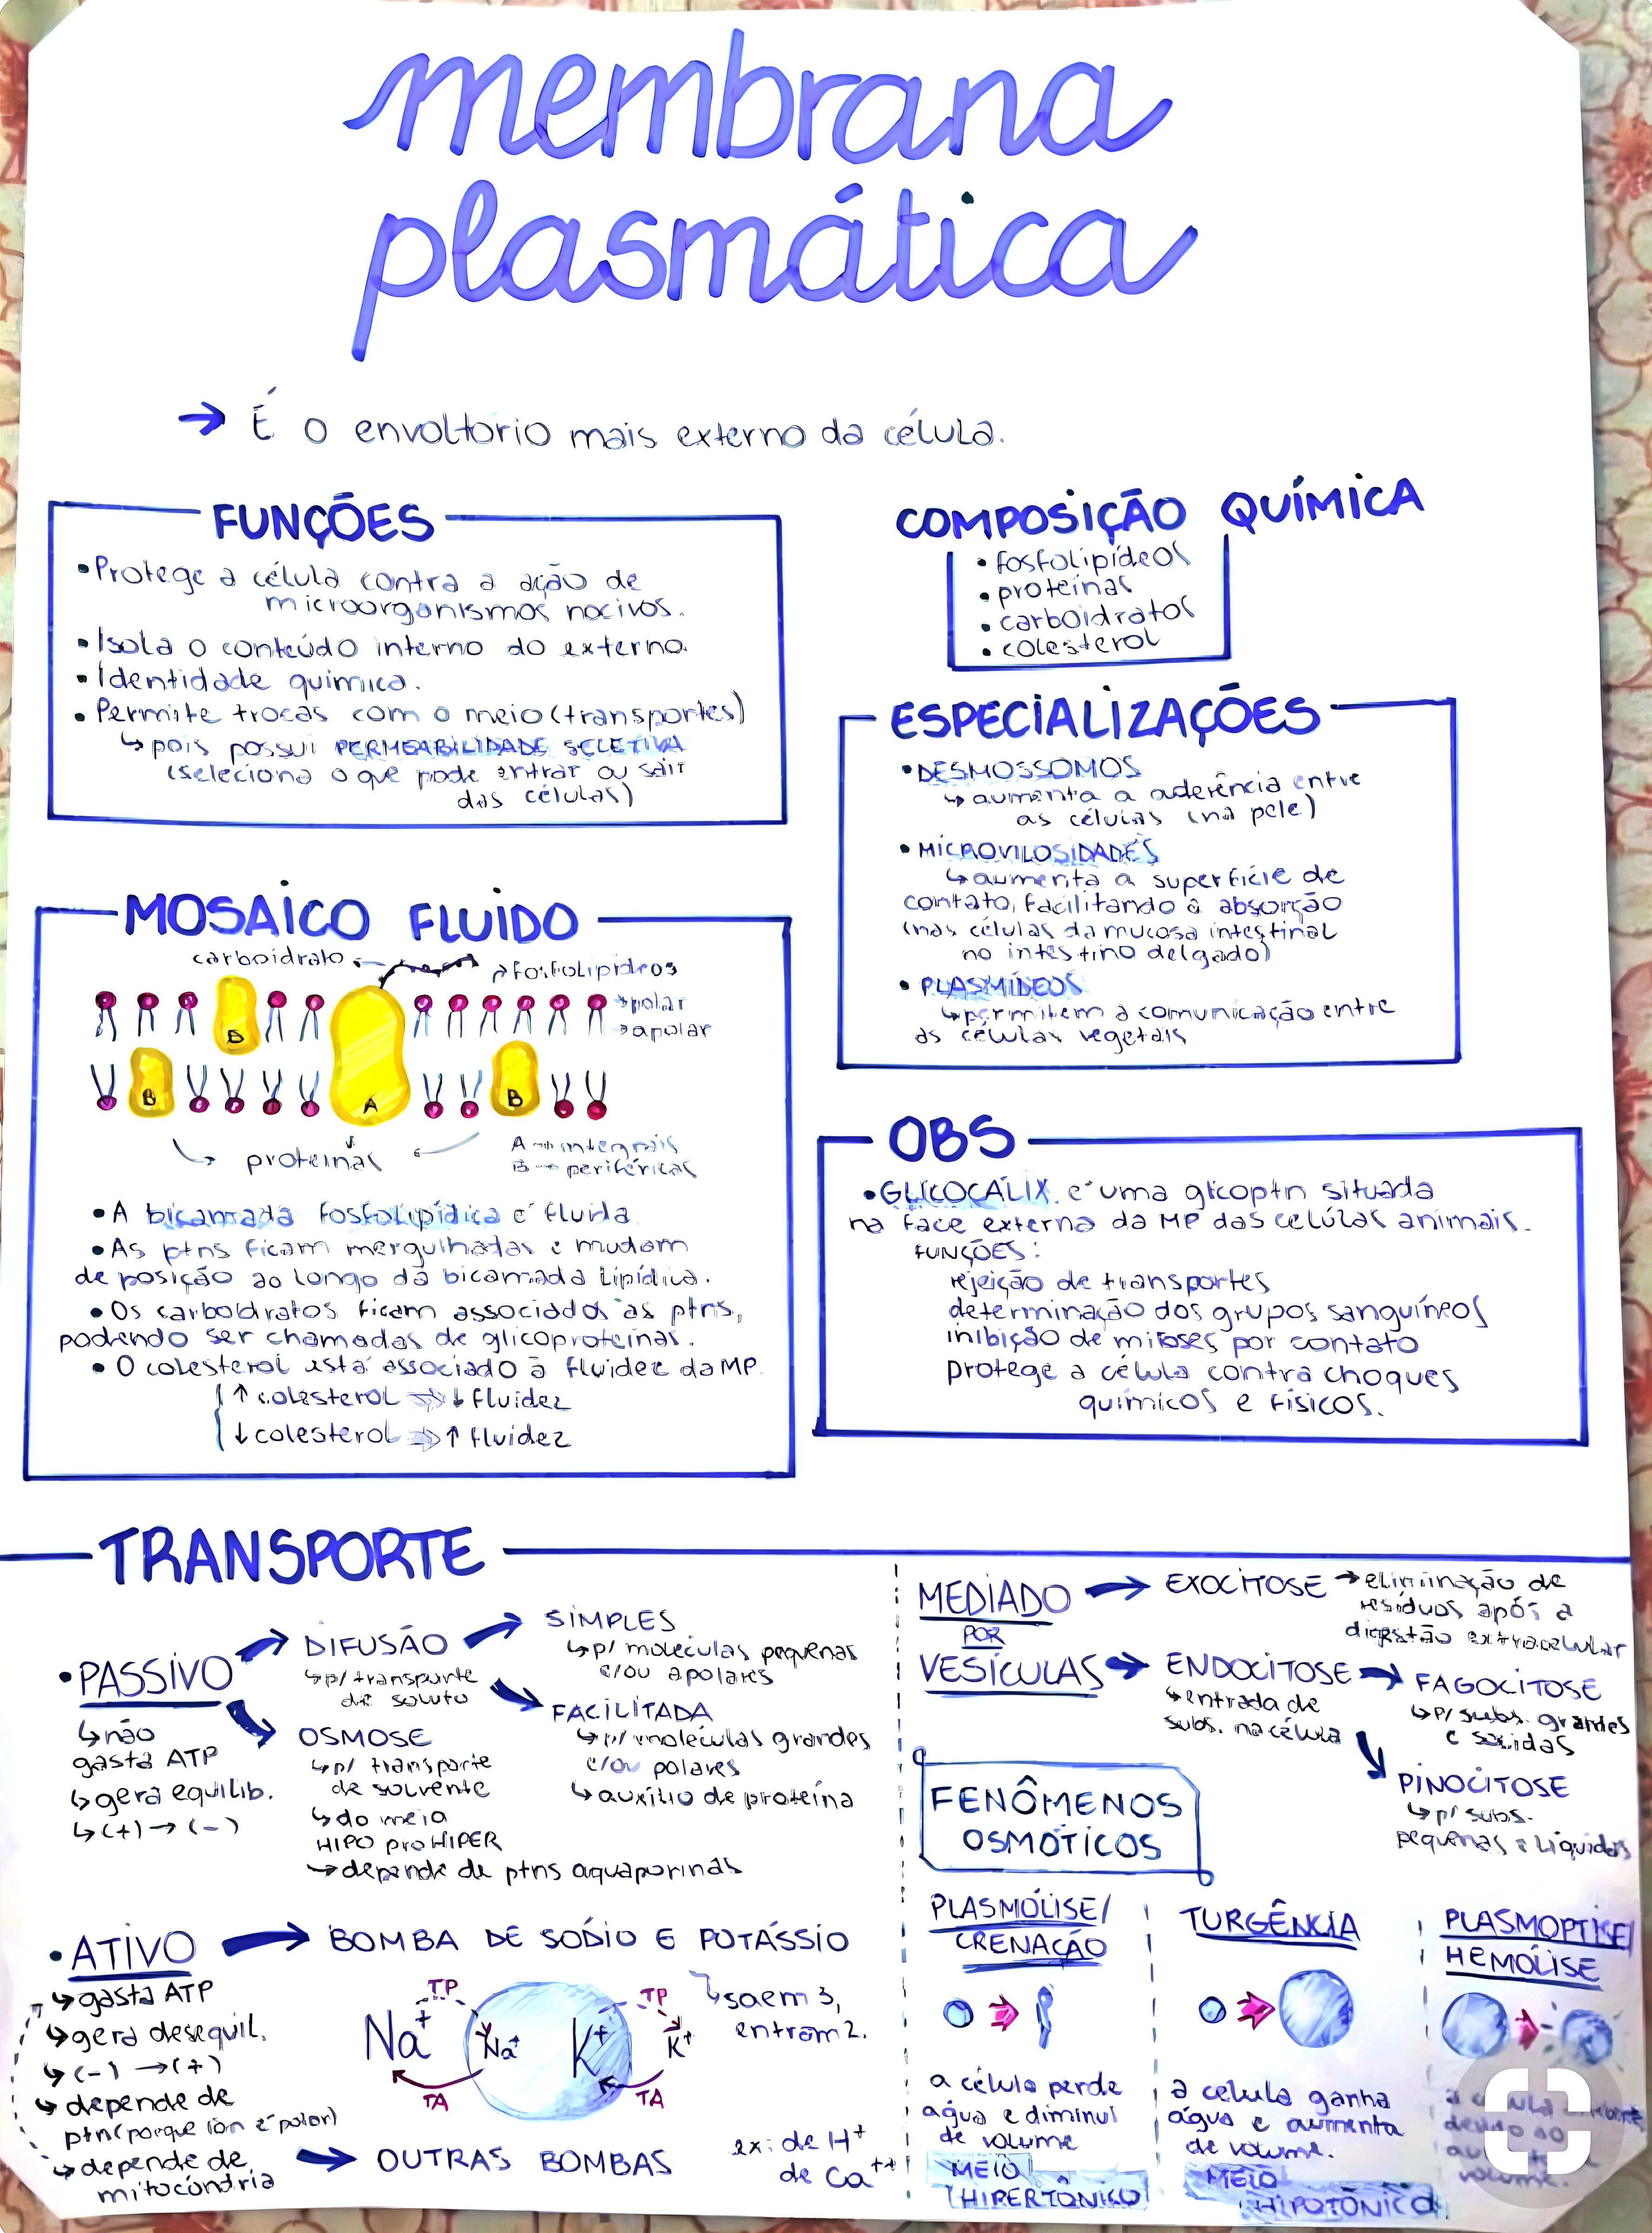 membrana
plasmática
→ É o envoltório mais externo da célula.
FUNÇÕES
• Protege a célula contra a ação de
microorganismos nocivos.
• Isola o conteúdo interno do externo.
• Identidade química.
• Permite trocas com o meio (transportes)
↳ pois possui PERMEABILIDADE SELETIVA
(seleciona o que pode entrar ou sair
das células)
COMPOSIÇÃO QUÍMICA
• fosfolipídeos
• proteínas
• carboidratos
• colesterol
ESPECIALIZAÇÕES
• DESMOSSOMOS
↳ aumenta a aderência entre
as células (na pele)
• MICROVILOSIDADES
↳ aumenta a superfície de
contato, facilitando a absorção
(nas células da mucosa intestinal
no intestino delgado)
• PLASMÍDEOS
↳ permitem a comunicação entre
as células vegetais
MOSAICO FLUIDO
carboidrato
fosfolipídeos
→ polar
→ apolar
B
B
A
B
proteínas
A → integrais
B → periféricas
• A bicamada fosfolipídica é fluida
• As ptns ficam mergulhadas e mudam
de posição ao longo da bicamada lipídica.
• Os carboidratos ficam associados às ptns,
podendo ser chamadas de glicoproteínas.
• O colesterol está associado à fluidez da MP.
↑ colesterol ⇒ ↓ fluidez
↓ colesterol ⇒ ↑ fluidez
OBS
• GLICOCÁLIX é uma glicoptn situada
na face externa da MP das celúlas animais.
FUNÇÕES:
rejeição de transportes
determinação dos grupos sanguíneos
inibição de mitoses por contato
protege a célula contra choques
químicos e físicos.
TRANSPORTE
• PASSIVO
↳ não
gasta ATP
↳ gera equilib.
↳ (+) → (-)
DIFUSÃO
↳ p/ transporte
de soluto
SIMPLES
↳ p/ moléculas pequenas
e/ou apolares
FACILITADA
↳ p/ moléculas grandes
e/ou polares
↳ auxílio de proteína
OSMOSE
↳ p/ transporte
de solvente
↳ do meio
HIPO pro HIPER
↳ depende de ptns aquaporinas
• ATIVO → BOMBA DE SÓDIO E POTÁSSIO
↳ gasta ATP
↳ gera desequil.
↳ (-) → (+)
↳ depende de
ptn (porque íon é polar)
↳ depende de
mitocôndria
TP
TP
Na⁺
Na⁺
K⁺
K⁺
TA
TA
↳ saem 3,
entram 2.
→ OUTRAS BOMBAS
ex: de H⁺
de Ca⁺⁺
MEDIADO
POR
VESÍCULAS
→ EXOCITOSE → eliminação de
resíduos após a
digestão extracelular
→ ENDOCITOSE
↳ entrada de
subs. na célula
→ FAGOCITOSE
↳ p/ subs. grandes
e sólidas
PINOCITOSE
↳ p/ subs.
pequenas e líquidas
FENÔMENOS
OSMÓTICOS
PLASMÓLISE/
CRENAÇÃO
a célula perde
água e diminui
de volume
MEIO
HIPERTÔNICO
TURGÊNCIA
a celula ganha
água e aumenta
de volume.
MEIO
HIPOTÔNICO
PLASMOPTISE/
HEMÓLISE
volume.